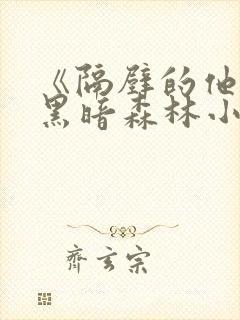 《隔壁的他
黑暗森林小
齐玄宗